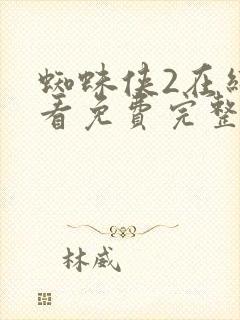 蜘蛛侠2在线
看免費完整
林威